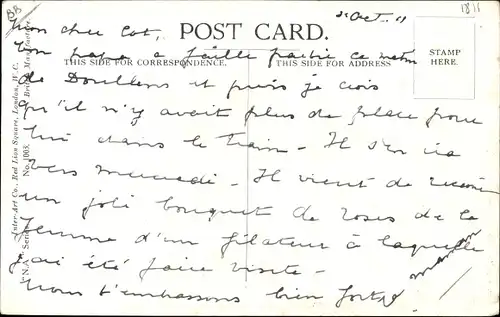 BB
2 Oct. 11
1811
Mon cher Cot,
POST CARD.
Ton papa a failli partir ce matin
THIS SIDE FOR CORRESPONDENCE.
THIS SIDE FOR ADDRESS
STAMP HERE.
de Doullens et puis je crois
qu'il n'y avait plus de place pour
lui dans le train - Il s'en ira
vers mercredi - Il vient de recevoir
un joli bouquet de roses de la
femme d'un filateur à laquelle
j'ai été faire visite -
Nous t'embrassons bien fort
maman
Inter-Art Co., Red Lion Square, London, W.C.
No. 1003.
British Manufacture.